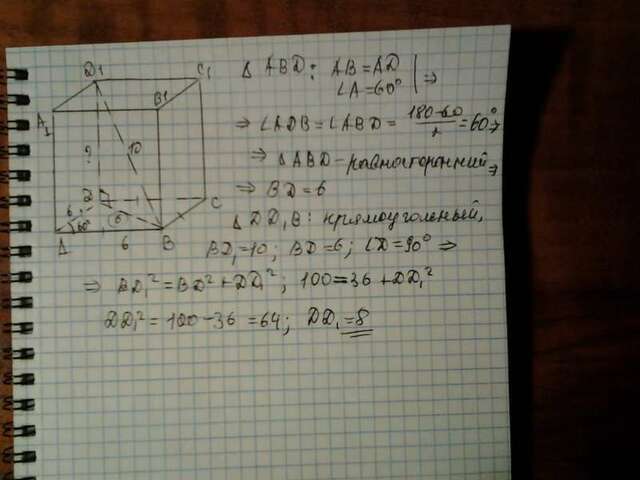 D1 C1
A1 B1
? 10
6 60° 6 C
A 6 B
Δ ABD: AB=AD
∠A=60° | ⇒
⇒ ∠ADB=∠ABD= (180-60)/2 =60° ⇒
⇒ ΔABD-равносторонний, ⇒
⇒ BD=6
Δ DD₁B: прямоугольный,
BD₁=10; BD=6; ∠D=90° ⇒
⇒ BD₁²=BD²+DD₁²; 100=36+DD₁²
DD₁²=100-36=64; DD₁=8